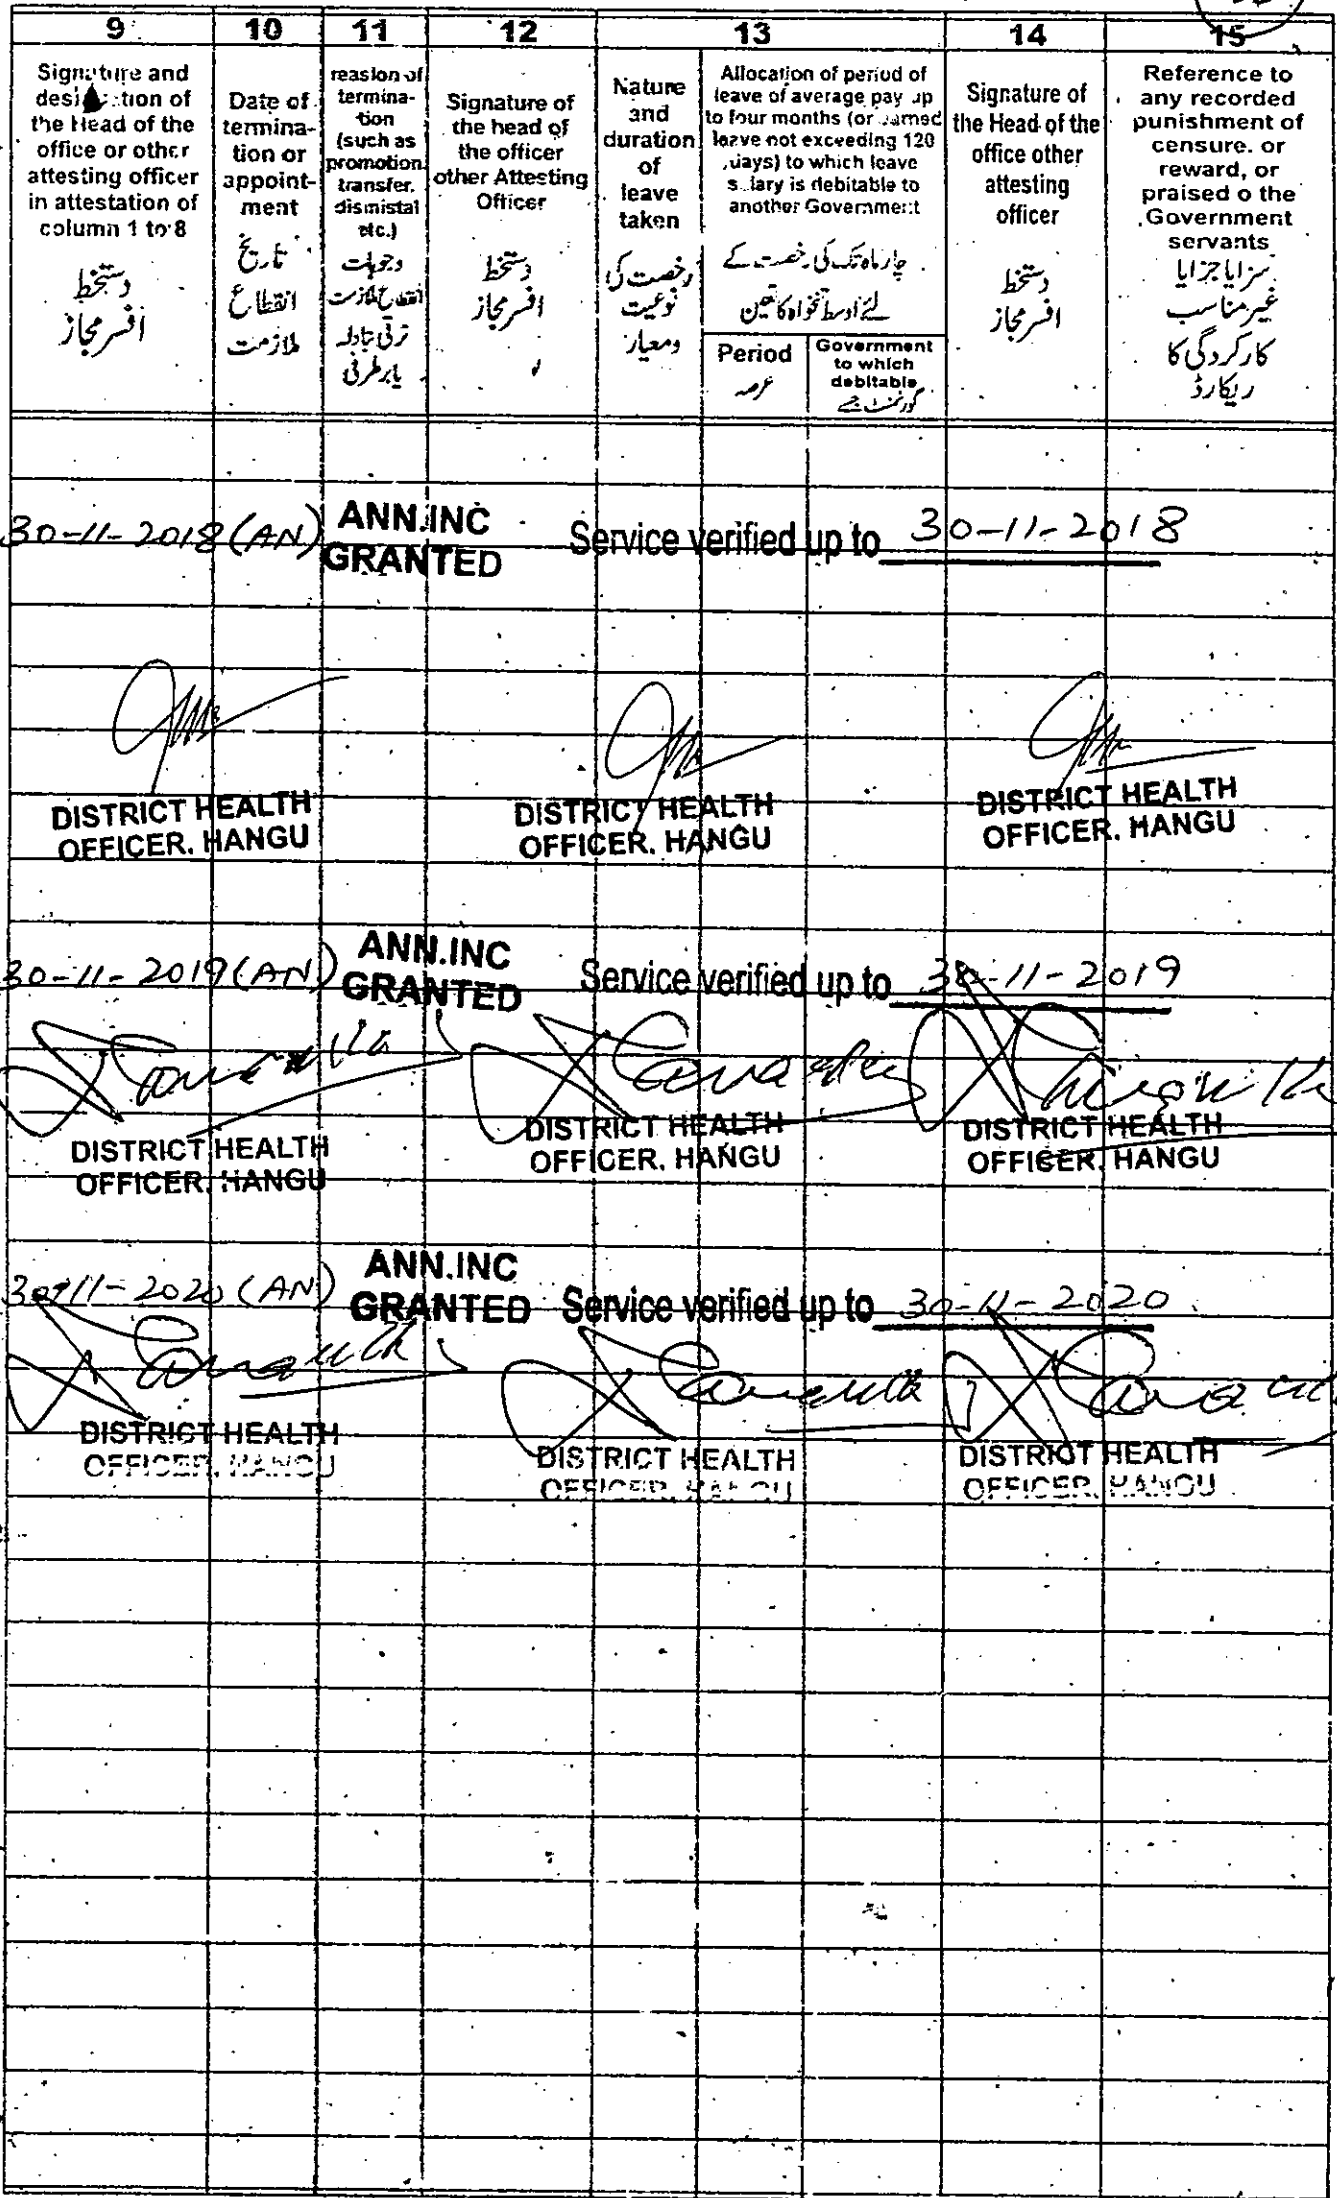 9 10 11 12 13 14 15
Signature and
designation of
the Head of the
office or other
attesting officer
in attestation of
column 1 to 8
دستخط
افسر مجاز
Date of
termina-
tion or
appoint-
ment
تاریخ
انقطاع
ملازمت
reasion of
termina-
tion
(such as
promotion
transfer.
dismistal
etc.)
وجوہات
انقطاع ملازمت
ترقی تبادلہ
یا برطرفی
Signature of
the head of
the officer
other Attesting
Officer
دستخط
افسر مجاز
Nature
and
duration
of
leave
taken
رخصت کی
نوعیت
ومعیار
Allocation of period of
leave of average pay up
to four months (or earned
leave not exceeding 120
days) to which leave
salary is debitable to
another Government
چار ماہ تک کی رخصت کے
لئے اوسط تنخواہ کا تعین
Period
عرصہ
Government
to which
debitable
گورنمنٹ جسے
Signature of
the Head of the
office other
attesting
officer
دستخط
افسر مجاز
Reference to
any recorded
punishment of
censure. or
reward, or
praised o the
Government
servants
سزا یا جزا یا
غیر مناسب
کارکردگی کا
ریکارڈ
30-11-2018 (AN) ANN.INC GRANTED Service verified up to 30-11-2018
DISTRICT HEALTH OFFICER. HANGU
DISTRICT HEALTH OFFICER. HANGU
DISTRICT HEALTH OFFICER. HANGU
30-11-2019 (AN) ANN.INC GRANTED Service verified up to 30-11-2019
DISTRICT HEALTH OFFICER. HANGU
DISTRICT HEALTH OFFICER. HANGU
DISTRICT HEALTH OFFICER. HANGU
30-11-2020 (AN) ANN.INC GRANTED Service verified up to 30-11-2020
DISTRICT HEALTH OFFICER. HANGU
DISTRICT HEALTH OFFICER. HANGU
DISTRICT HEALTH OFFICER. HANGU